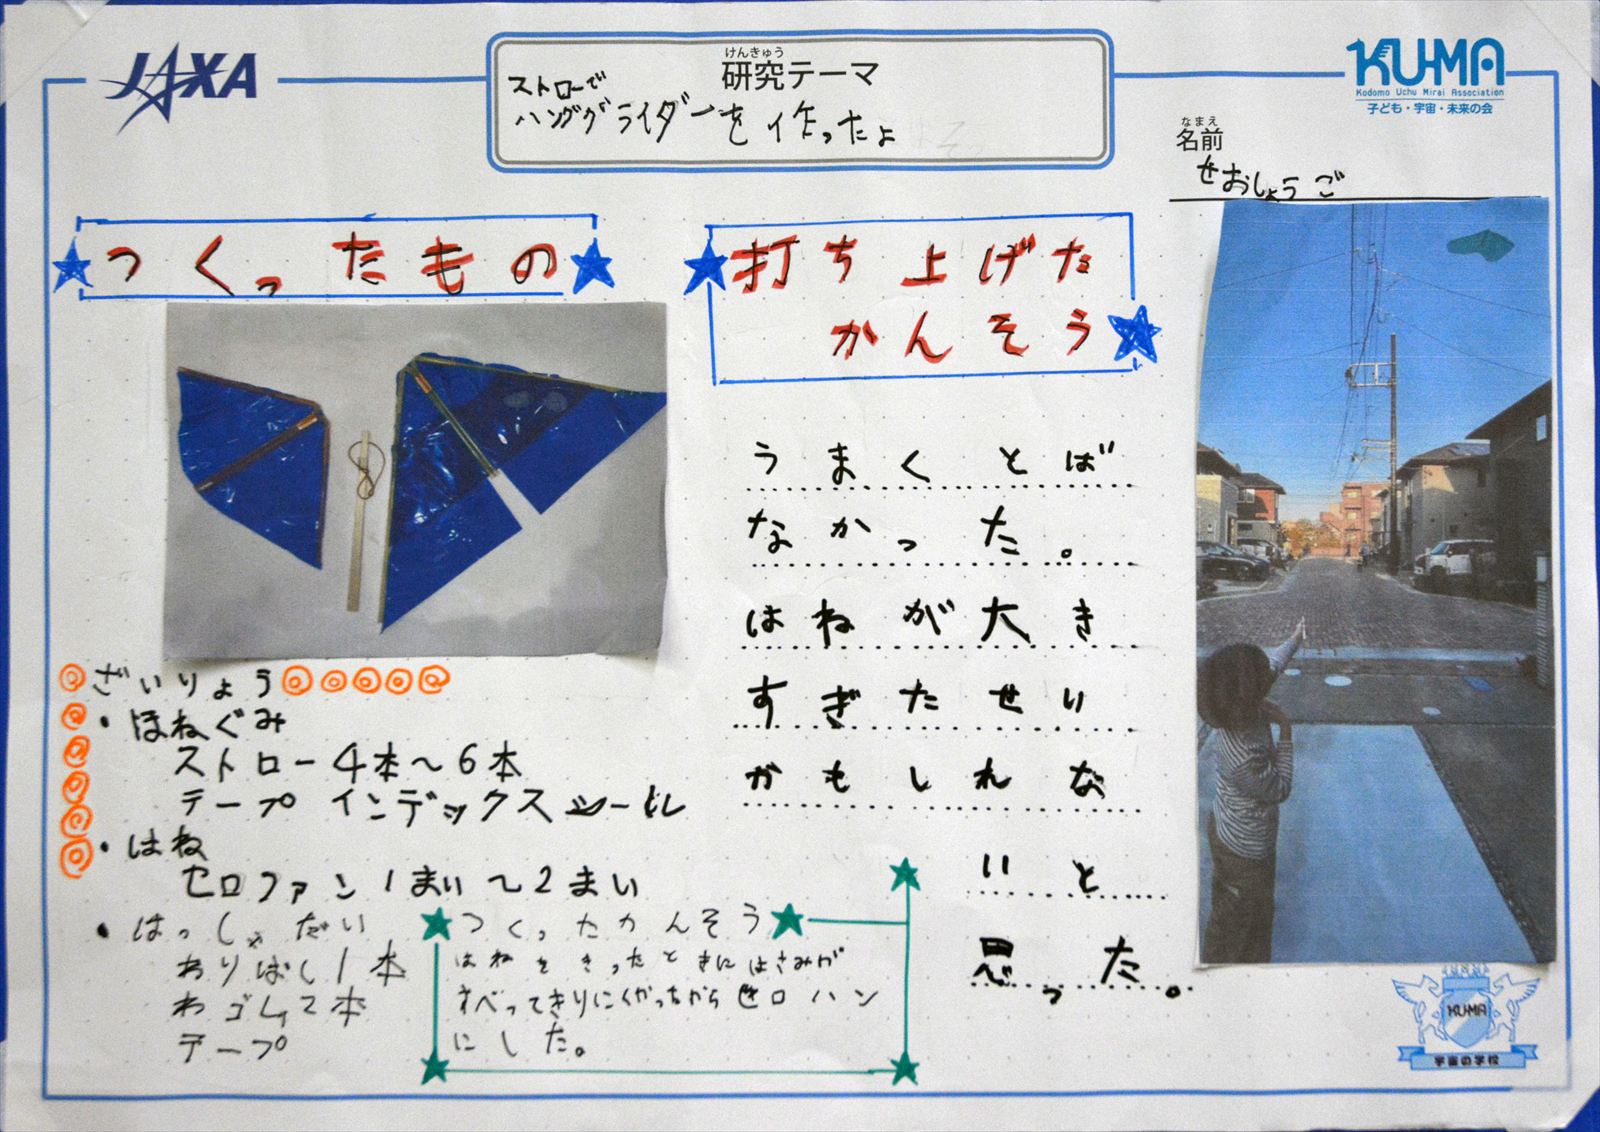 JAXA
けんきゅう
研究テーマ
ストローで
ハンググライダーを作ったよ
KU-MA
Kodomo Uchu Mirai Association
子ども・宇宙・未来の会
なまえ
名前
せおしょうご
つくったもの
ざいりょう
・ほねぐみ
ストロー4本〜6本
テープ インデックスシール
・はね
セロファン1まい〜2まい
・はっしゃだい
わりばし1本
わゴム2本
テープ
つくったかんそう
はねをきったときにはさみが
すべってきりにくかったからセロハン
にした。
打ち上げた
かんそう
うまくとば
なかった。
はねが大き
すぎたせい
かもしれな
いと
思った。
KUMA
宇宙の学校